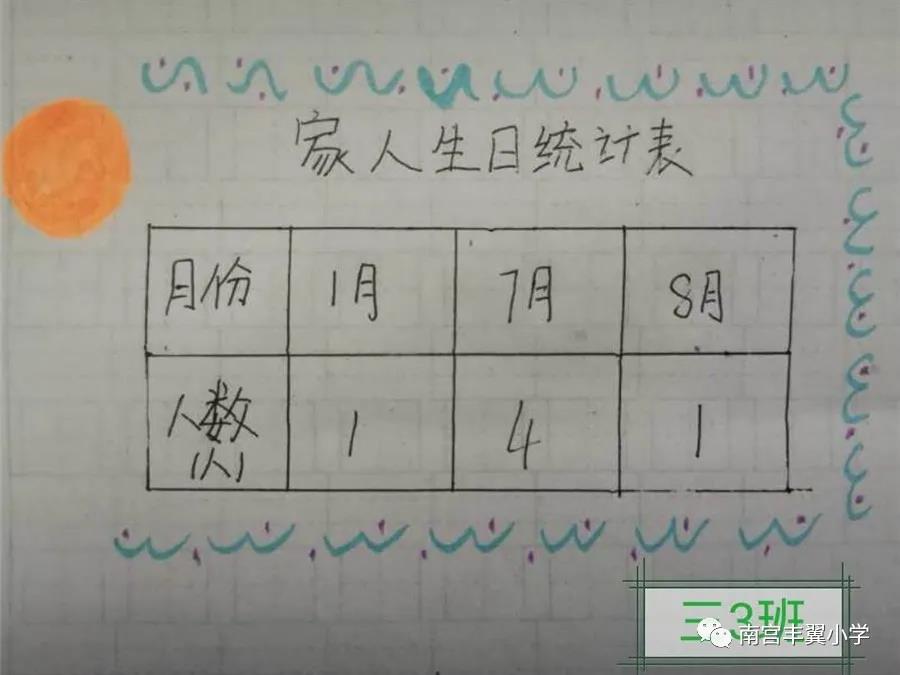 家人生日统计表
月份 1月 7月 8月
人数(人) 1 4 1
三3班
南宫丰翼小学